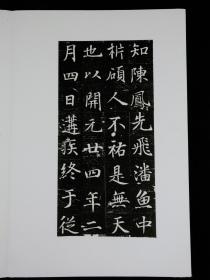 知陳鳳先飛潘魚中
析碩人不祐是無天
也以開元廿四年二
月四日遘疾終于從